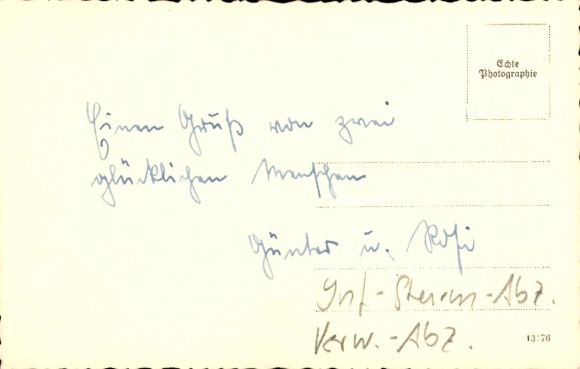 Echte
Photographie
Einen Gruß von zwei
glücklichen Menschen
Günter u. Rosi
Inf-Sturm-Abz.
Verw.-Abz.
13176